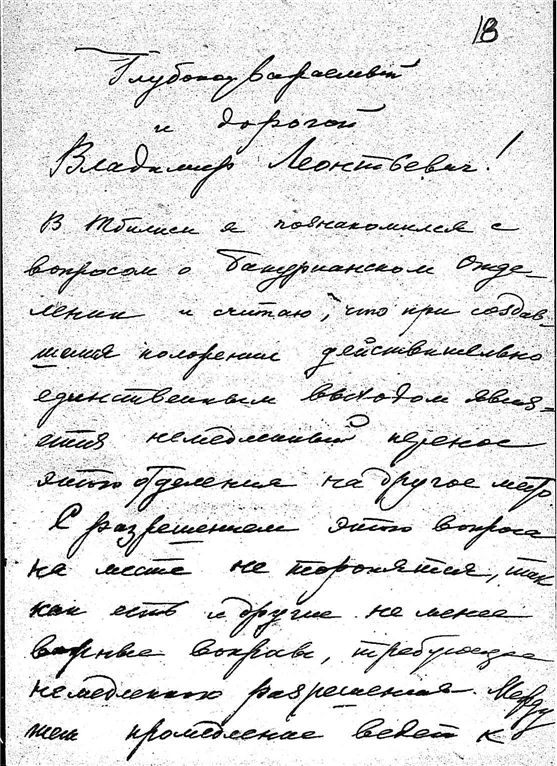 18
Глубокоуважаемый
и дорогой
Владимир Леонтьевич!
В Тбилиси я познакомился с
вопросом о Бакурианском Отде-
лении и считаю, что при создав-
шемся положении действительно
единственным выходом явля-
ется немедленный перенос
этого отделения на другое место
С разрешением этого вопроса
на месте не торопятся, так
как есть и другие не менее
важные вопросы, требующие
немедленного разрешения. Между
тем промедление ведет к